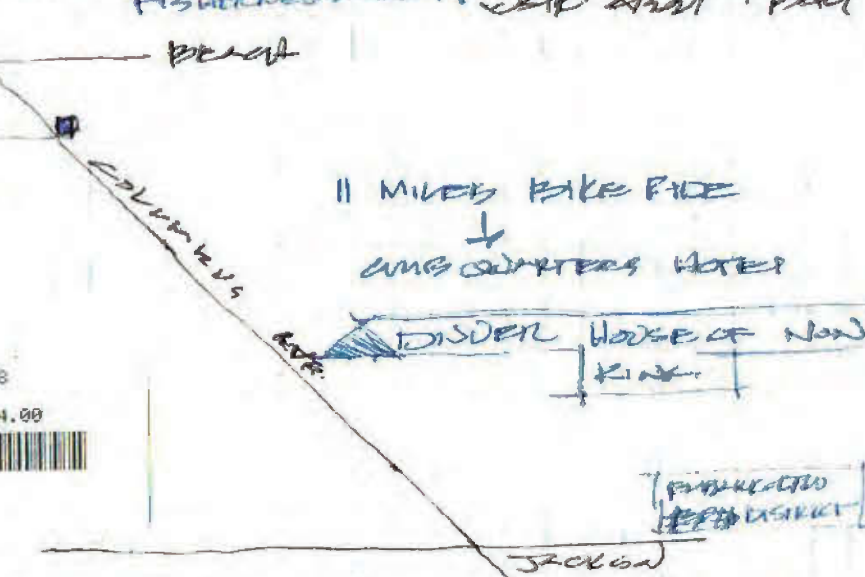 BEACH
COLUMBUS
AVE.
11 MILES BIKE RIDE
CLUB QUARTERS HOTEL
DINNER HOUSE OF NAN
KING
4.00
DISTRICT
JACKSON